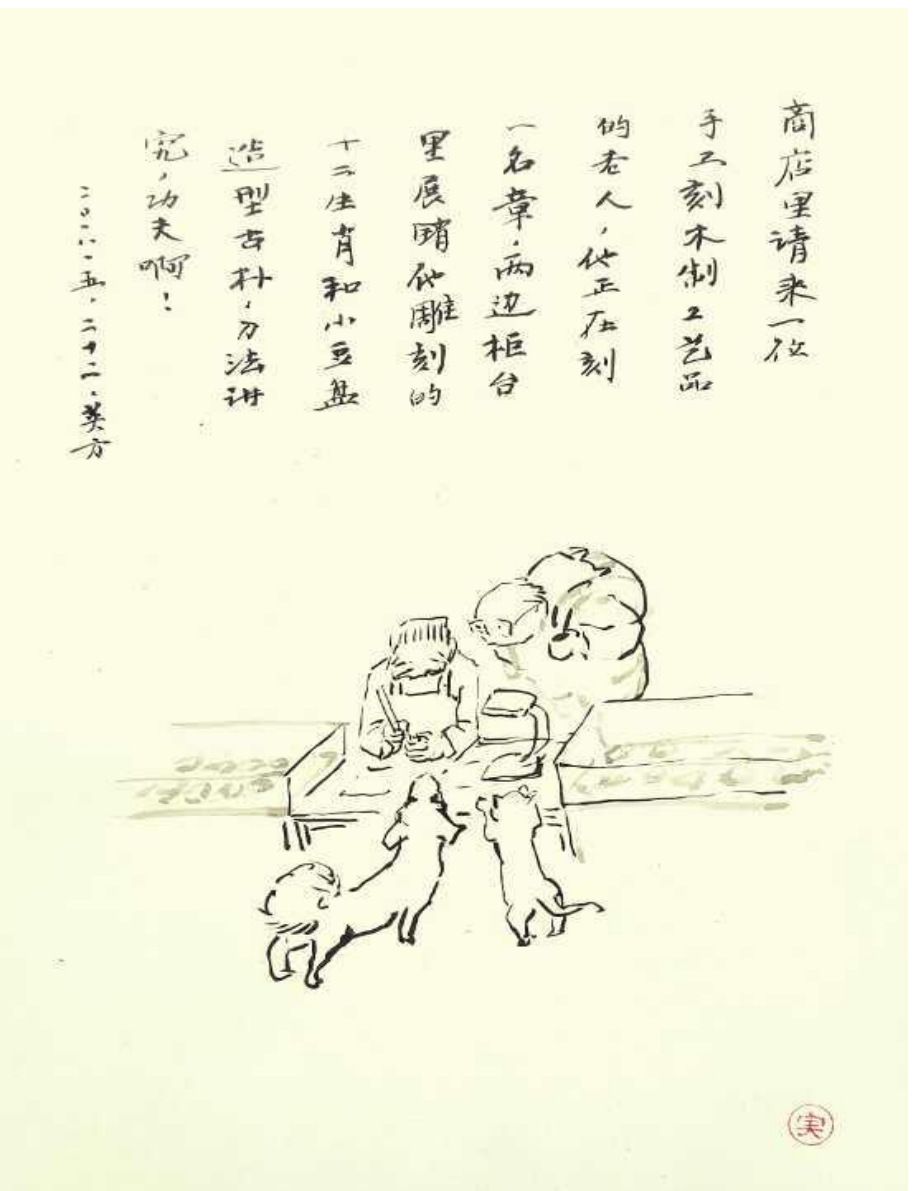 商店里请来一位
手工刻木制工艺品
的老人，他正在刻
一名章，两边柜台
里展睛他雕刻的
十二生肖和小豆盘
造型古朴，刀法讲
究，功夫啊！
二〇〇八·五·二十二·英方
実